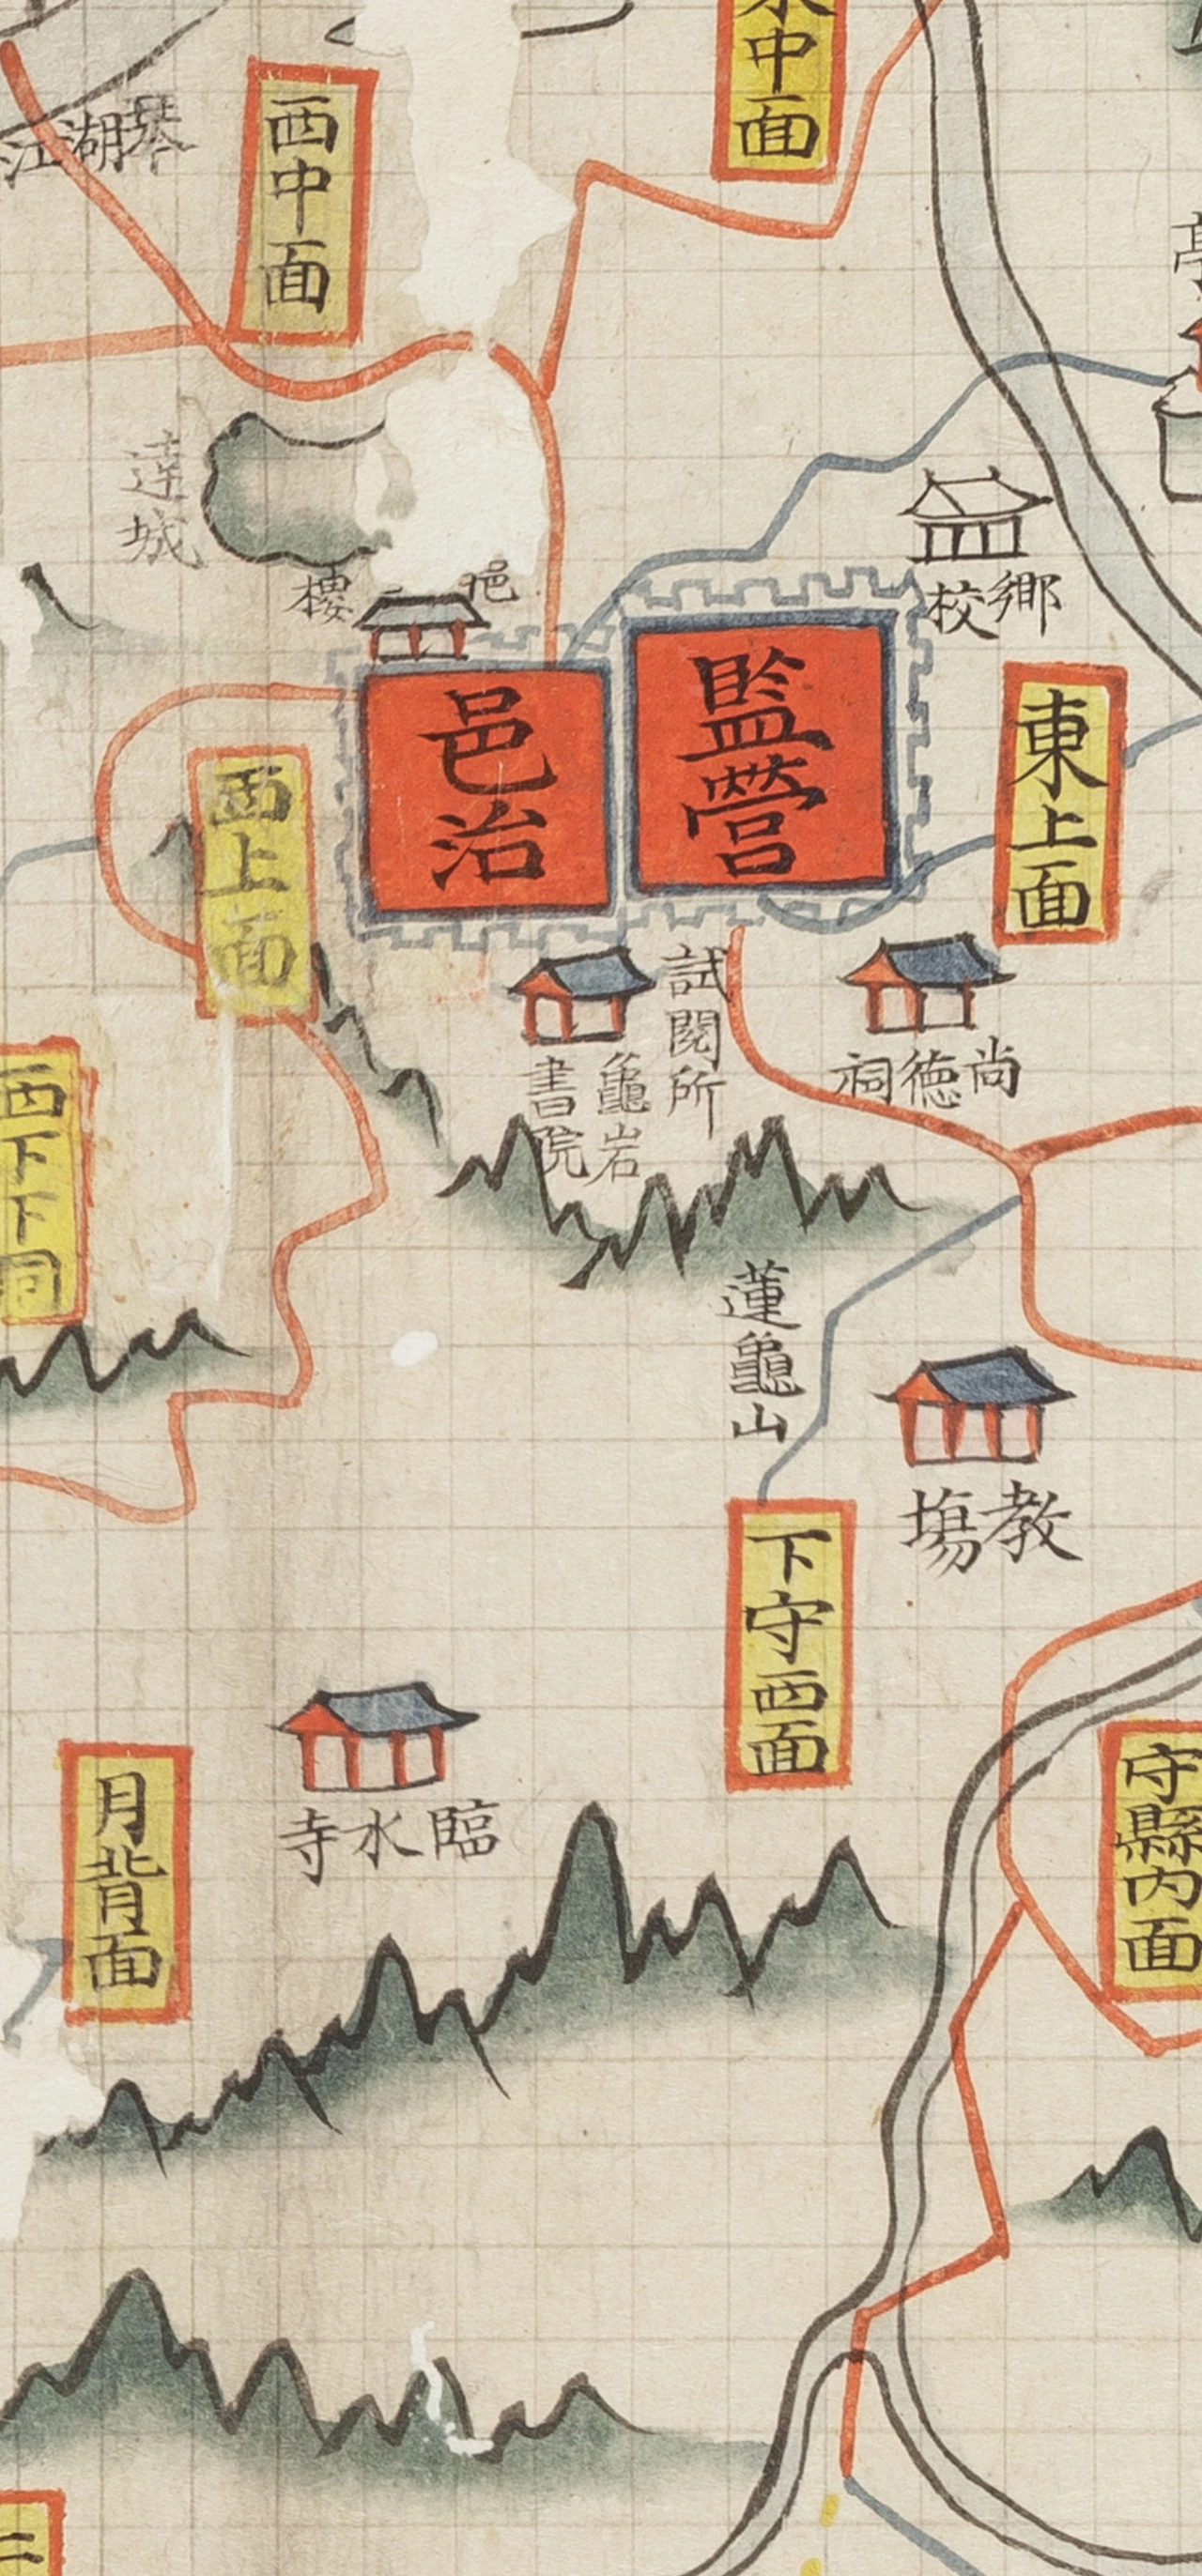 中面
西中面
琴湖江
達城
樓
鄕校
監營
邑治
東上面
西上面
試閱所
龜岩
書院
尚德祠
西下下同
蓮龜山
教場
下守西面
守縣內面
臨水寺
月背面